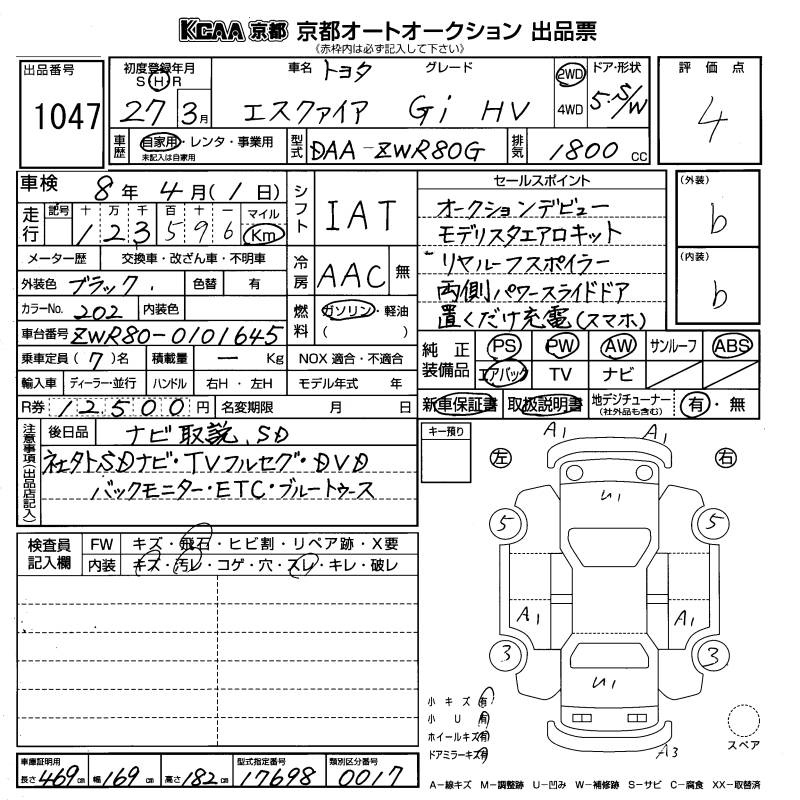 KCAA 京都 京都オートオークション 出品票
《赤枠内は必ず記入して下さい》
出品番号
1047
初度登録年月
S H R
27 3月
車名 トヨタ グレード
エスクァイア Gi HV
2WD
4WD
ドア・形状
5 S/W
評価点
4
車歴
自家用・レンタ・事業用
未記入は自家用
型式
DAA-ZWR80G
排気
1800 CC
車検 8年 4月(1日)
走行
記号 十 万 千 百 十 一 マイル
1 2 3 5 9 6 Km
メーター歴 交換車・改ざん車・不明車
外装色 ブラック 色替 有
カラーNo. 202 内装色
車台番号 ZWR80-0101645
乗車定員 (7)名 積載量 ー Kg
輸入車 ディーラー・並行 ハンドル 右H・左H
R券 12500円 名変期限 月 日
シフト
IAT
冷房
AAC 無
燃料
ガソリン・軽油
( )
NOX 適合・不適合
モデル年式 年
セールスポイント
オークションデビュー
モデリスタエアロキット
リヤルーフスポイラー
両側パワースライドドア
置くだけ充電(スマホ)
(外装)
b
(内装)
b
純正装備品
PS PW AW サンルーフ ABS
エアバック TV ナビ
新車保証書 取扱説明書 地デジチューナー
(社外品も含む)
有・無
注意事項(出品店記入)
後日品 ナビ取説、SD
社外SDナビ・TVフルセグ・DVD
バックモニター・ETC・ブルートゥース
キー預り
検査員記入欄
FW キズ・飛石・ヒビ割・リペア跡・X要
内装 キズ・汚レ・コゲ・穴・スレ・キレ・破レ
左 右
A1 A1
U1
5 5
A1 A1
3 3
U1
A3
小キズ 有
小U 有
ホイールキズ 有
ドアミラーキズ 有
スペア
車庫証明用
長さ 469cm 幅 169cm 高さ 182cm
型式指定番号
17698
類別区分番号
0017
A-線キズ M-調整跡 U-凹み W-補修跡 S-サビ C-腐食 XX-取替済